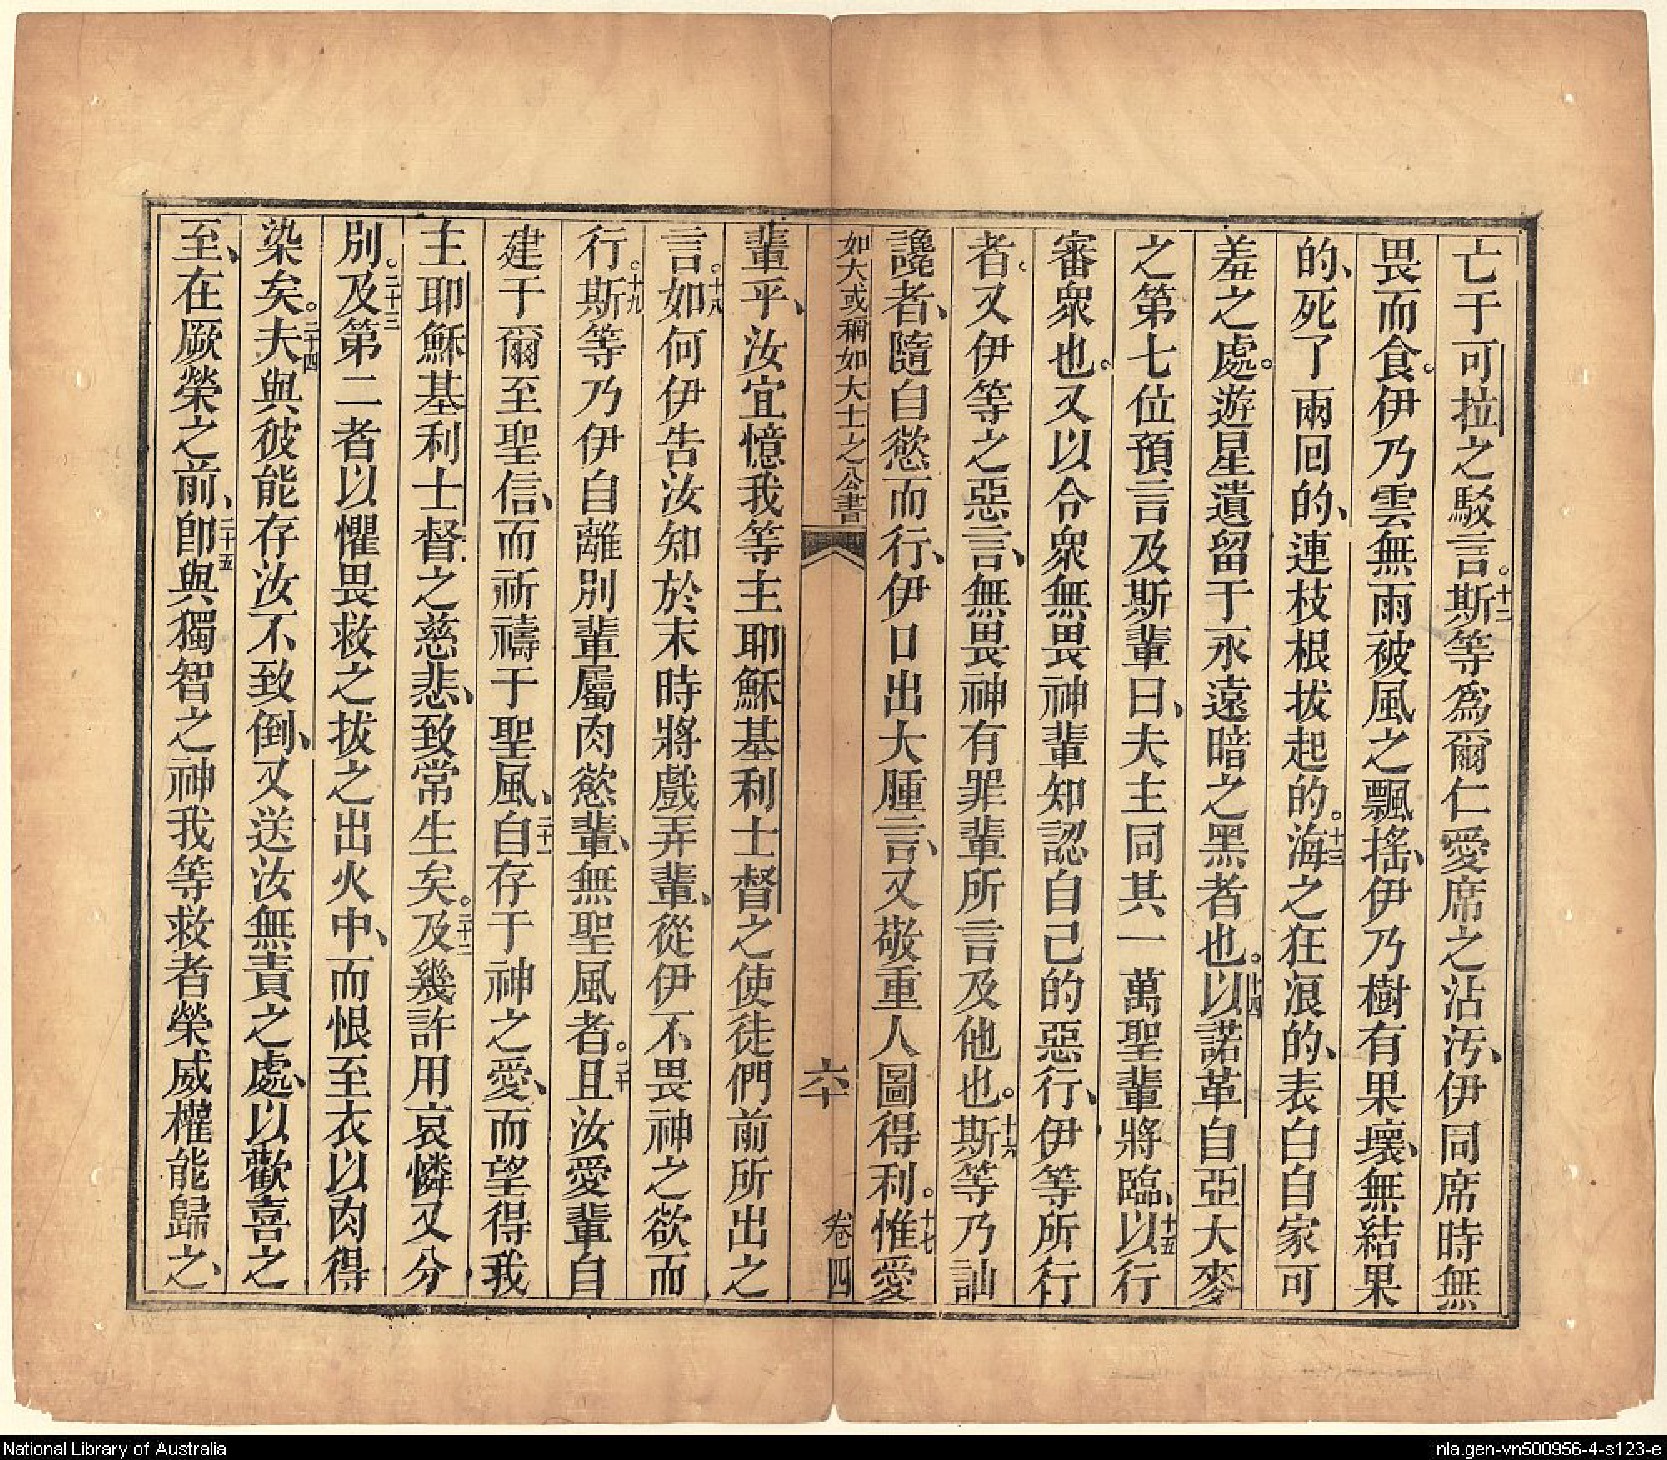 亡于可拉之駁言。十二斯等爲爾仁愛席之沾汚、伊同席時無
畏而食。伊乃雲無雨被風之飄搖、伊乃樹有果壞、無結果
的、死了兩回的、連枝根拔起的。十三海之狂浪的、表白自家可
羞之處。遊星遺留于永遠暗之黑者也。十四以諾革自亞大麥
之第七位預言及斯輩曰、夫主同其一萬聖輩將臨、十五以行
審衆也。又以令衆無畏神輩知認自己的惡行、伊等所行
者。又伊等之惡言、無畏神有罪輩所言及他也。十六斯等乃訕
讒者、隨自慾而行、伊口出大腫言、又敬重人圖得利。十七惟愛
如大或稱如大士之公書 六十 卷四
輩乎、汝宜憶我等主耶穌基利士督之使徒們前所出之
言。十八如何伊告汝知於末時將戲弄輩、從伊不畏神之欲而
行。十九斯等乃伊自離別輩屬肉慾輩、無聖風者。二十且汝愛輩自
建于爾至聖信、而祈禱于聖風、二十一自存于神之愛、而望得我
主耶穌基利士督之慈悲、致常生矣。二十二及幾許用哀憐又分
別。二十三及第二者以懼畏救之拔之出火中、而恨至衣以肉得
染矣。二十四夫與彼能存汝不致倒、又送汝無責之處、以歡喜之
至、在厥榮之前、二十五卽與獨智之神我等救者榮威權能歸之、